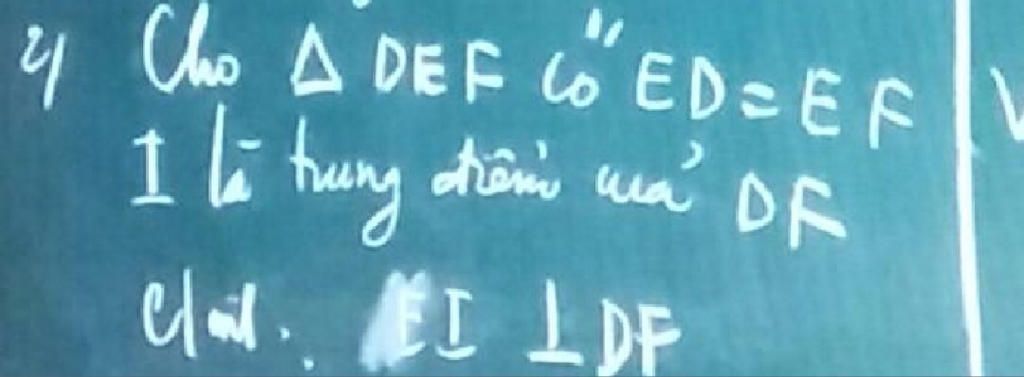 2) Cho Δ DEF có ED = EF
I là trung điểm của DF
C/m: EI ⊥ DF